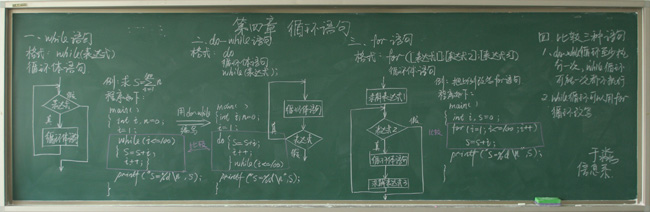 第四章 循环语句
一、while语句
格式: while(表达式)
循环体语句
表达式
假
真
循环体语句
例: 求
程序如下:
main()
{ int i, s=0;
i=1;
while(i<=100)
{ s=s+i;
i++; }
printf("s=%d\n",s);
二、do-while语句
格式: do
循环体语句
while(表达式);
用do-while
main()
{ int i, s=0;
i=1;
do { s=s+i;
i++; }
while(i<=100);
printf("s=%d\n",s);
比较
循环体语句
表达式
真
假
三、for语句
格式: for([表达式1];[表达式2];[表达式3])
循环体语句
求解表达式1
表达式2
假
真
循环体语句
求解表达式3
程序如下:
main()
{ int i, s=0;
for(i=1; i<=100; i++)
s=s+i;
printf("s=%d\n",s);
比较
四、比较三种语句
1. do-while循环至少执
行一次, while循环
可能一次都不执行
2. while循环可以用for
循环改写
信息系